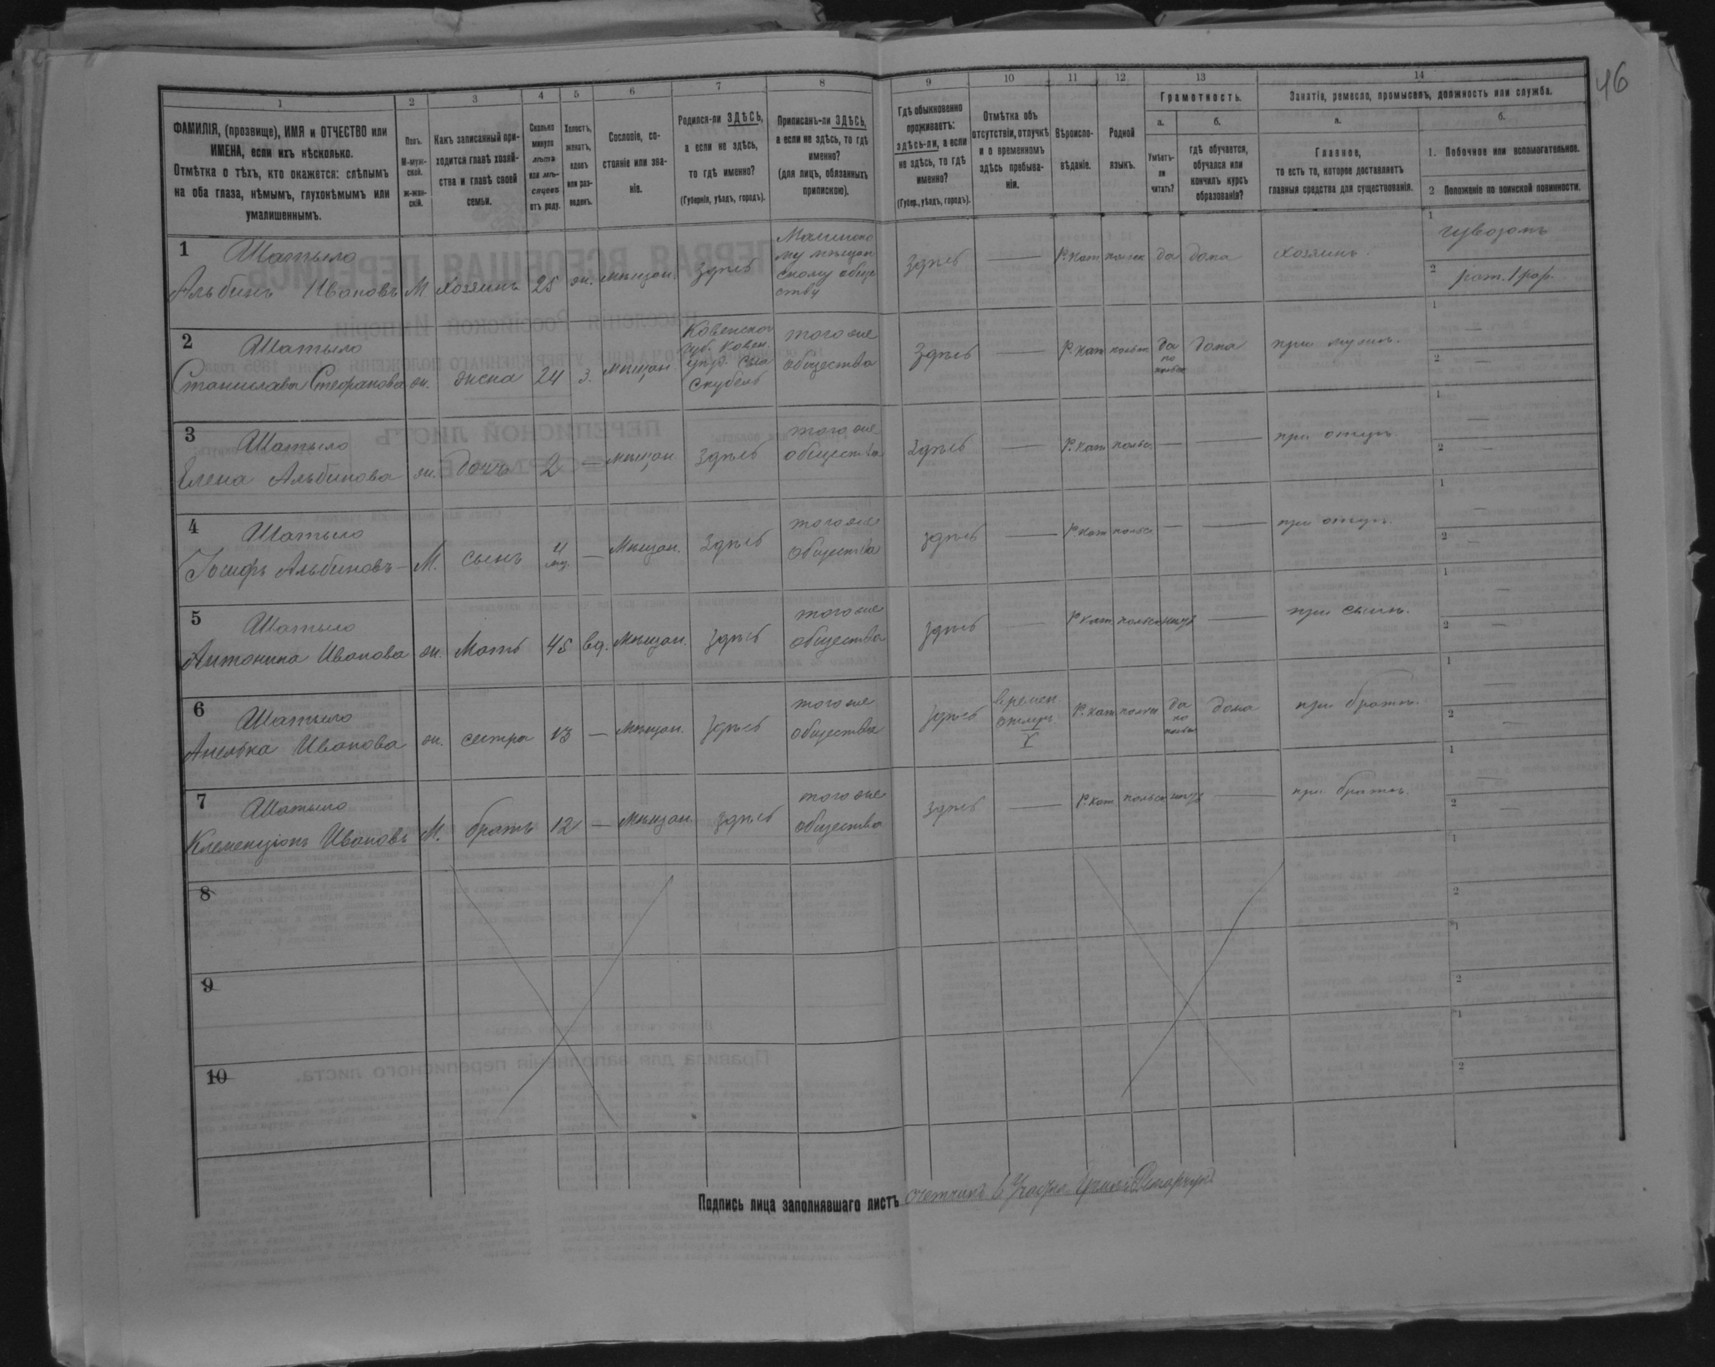 46
1 2 3 4 5 6 7 8 9 10 11 12 13 14
ФАМИЛІЯ, (прозвище), ИМЯ и ОТЧЕСТВО или
ИМЕНА, если ихъ нѣсколько.
Отмѣтка о тѣхъ, кто окажется: слѣпымъ
на оба глаза, нѣмымъ, глухонѣмымъ или
умалишеннымъ.
Полъ.
М-муж-
ской.
ж-жен-
скій.
Какъ записанный при-
ходится главѣ хозяй-
ства и главѣ своей
семьи.
Сколько
минуло
лѣтъ
или мѣ-
сяцевъ
отъ роду.
Холостъ,
женатъ,
вдовъ
или раз-
веденъ.
Сословіе, со-
стояніе или зва-
ніе.
Родился-ли ЗДѢСЬ,
а если не здѣсь,
то гдѣ именно?
(Губернія, уѣздъ, городъ).
Приписанъ-ли ЗДѢСЬ,
а если не здѣсь, то гдѣ
именно?
(для лицъ, обязанныхъ
припискою).
Гдѣ обыкновенно
проживаетъ:
здѣсь-ли, а если
не здѣсь, то гдѣ
именно?
(Губер., уѣздъ, городъ).
Отмѣтка объ
отсутствіи, отлучкѣ
и о временномъ
здѣсь пребыва-
ніи.
Вѣроиспо-
вѣданіе.
Родной
языкъ.
Грамотность.
а.
Умѣетъ-
ли
читать?
б.
гдѣ обучается,
обучался или
кончилъ курсъ
образованія?
Занятіе, ремесло, промыселъ, должность или служба.
а.
Главное,
то есть то, которое доставляетъ
главныя средства для существованія.
б.
1. Побочное или вспомогательное.
2 Положеніе по воинской повинности.
1 Шатыло
Альбинъ Ивановъ М хозяинъ 25 ж. мѣщан. здѣсь
му мѣщан
скому обще
ству
здѣсь — Р.кат. польск да дома хозяинъ.
1
2 рат. 1 раз.
2 Шатыло
Станислава Стефанова ж. жена 24 з. мѣщан.
Ковенской
губ. Ковен.
того же
общества
здѣсь — Р.кат. польск да по польск дома при мужѣ.
1 —
2 —
3 Шатыло
Елена Альбинова ж. дочь 2 — мѣщан здѣсь
того же
общества
здѣсь — Р.кат. польс. — — при отцѣ.
1 —
2 —
4 Шатыло
Іосифъ Альбиновъ М. сынъ 4 мц. — Мѣщан. здѣсь
того же
общества
здѣсь — Р.кат. польс — — при отцѣ.
1 —
2 —
5 Шатыло
Антонина Иванова ж. Мать 45 вд. Мѣщан. здѣсь
того же
общества
здѣсь — Р.кат. польск нѣтъ — при сынѣ.
1 —
2 —
6 Шатыло
Анелька Иванова ж. сестра 13 — Мѣщан. здѣсь
того же
общества
здѣсь времен отлуч. Р.кат. польск да по польск дома при братѣ.
1 —
2 —
7 Шатыло
Клеменціонъ Ивановъ М. братъ 12 — Мѣщан. здѣсь
того же
общества
здѣсь — Р.кат. польск нѣтъ — при братѣ.
1 —
2 —
8
1
2
9
1
2
10
1
2
Подпись лица заполнявшаго листъ счетчикъ